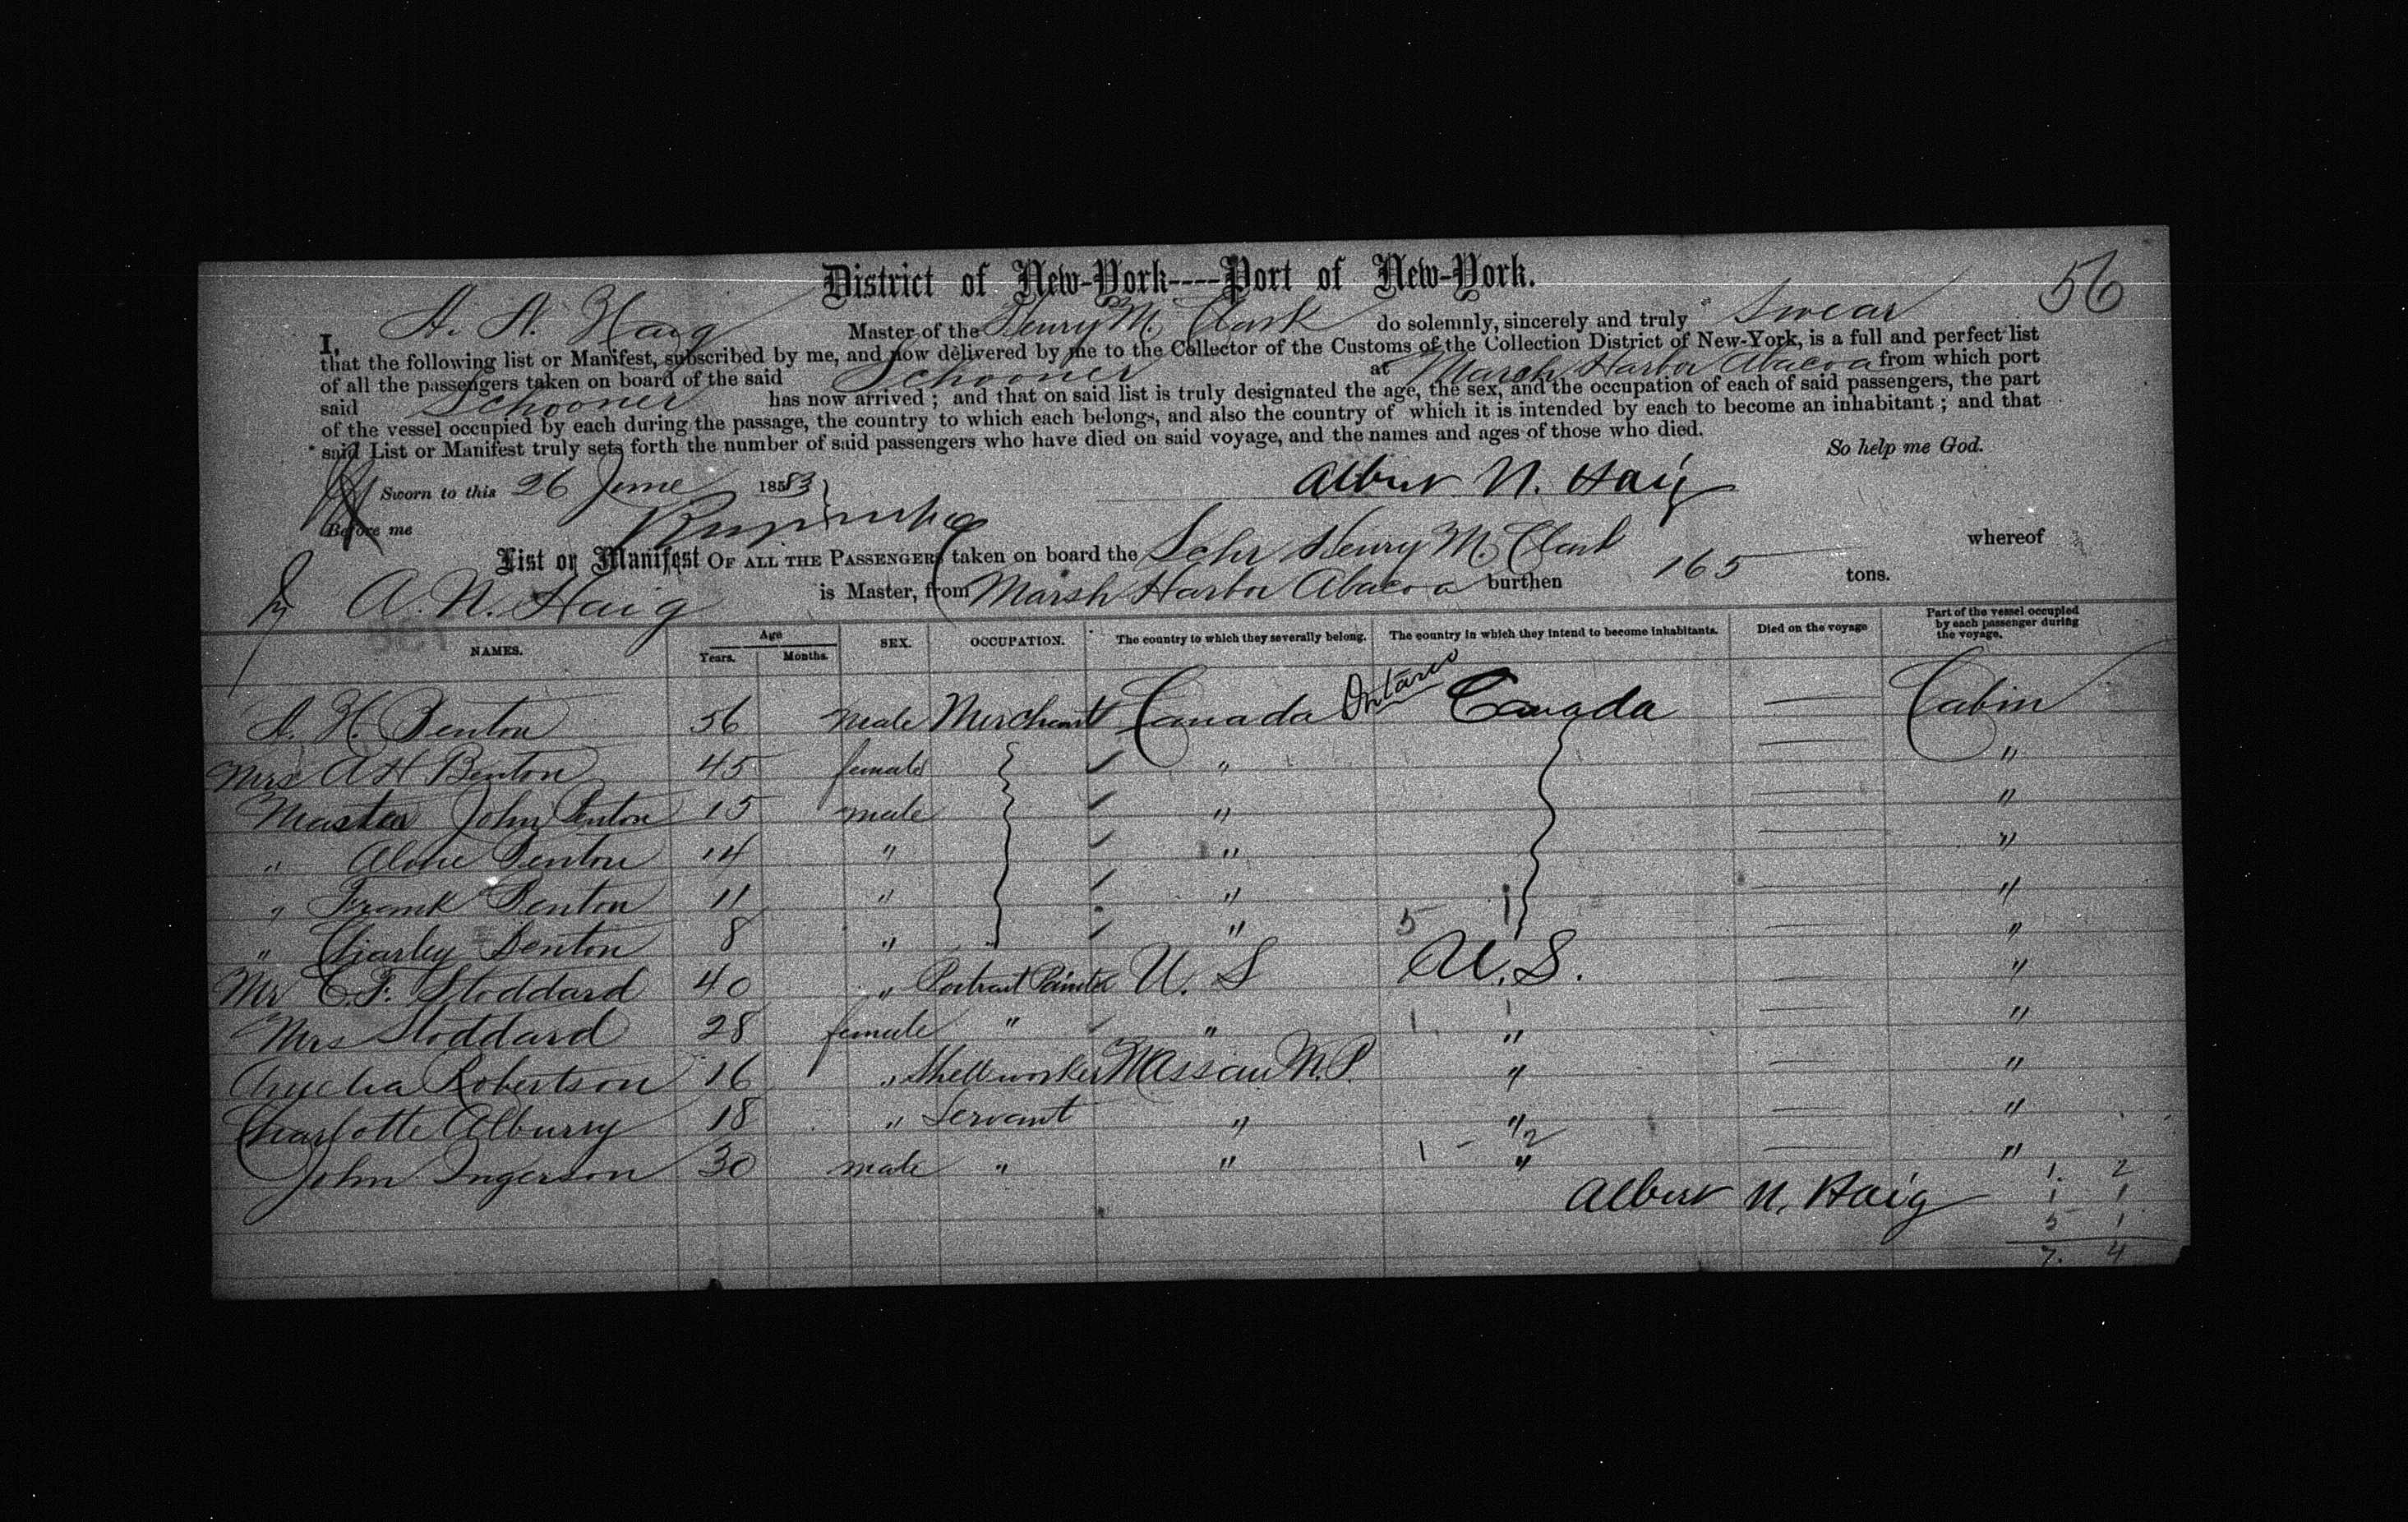 56
District of New-York----Port of New-York.
I, A. N. Haig Master of the Henry M. Clark do solemnly, sincerely and truly swear
that the following list or Manifest, subscribed by me, and now delivered by me to the Collector of the Customs of the Collection District of New-York, is a full and perfect list
of all the passengers taken on board of the said Schooner at Marsh Harbor Abacoa from which port
said Schooner has now arrived; and that on said list is truly designated the age, the sex, and the occupation of each of said passengers, the part
of the vessel occupied by each during the passage, the country to which each belongs, and also the country of which it is intended by each to become an inhabitant; and that
said List or Manifest truly sets forth the number of said passengers who have died on said voyage, and the names and ages of those who died.
So help me God.
Sworn to this 26 June 1883 Albert N. Haig
Before me
List or Manifest OF ALL THE PASSENGERS taken on board the Schr Henry M. Clark whereof
A. N. Haig is Master, from Marsh Harbor Abacoa burthen 165 tons.
NAMES. Age Years. Months. SEX. OCCUPATION. The country to which they severally belong. The country in which they intend to become inhabitants. Died on the voyage Part of the vessel occupied by each passenger during the voyage.
A. H. Benton 56 male Merchant Canada Ontario Canada — Cabin
Mrs A H Benton 45 female " — "
Master John Benton 15 male " — "
" Benton 14 " " — "
" Frank Benton 11 " " — "
" Charley Benton 8 " " 5 1 — "
Mr C. F. Stoddard 40 " Portrait Painter U. S U. S. — "
Mrs Stoddard 28 female " " 1 1 " — "
Amelia Robertson 16 " Shellworker Nassau N. P. " — "
Charlotte Alburry 18 " Servant " " — "
John Ingerson 30 male " " 1 - 2 " — "
Albert N. Haig
1. 2
1 1
5 1
7. 4